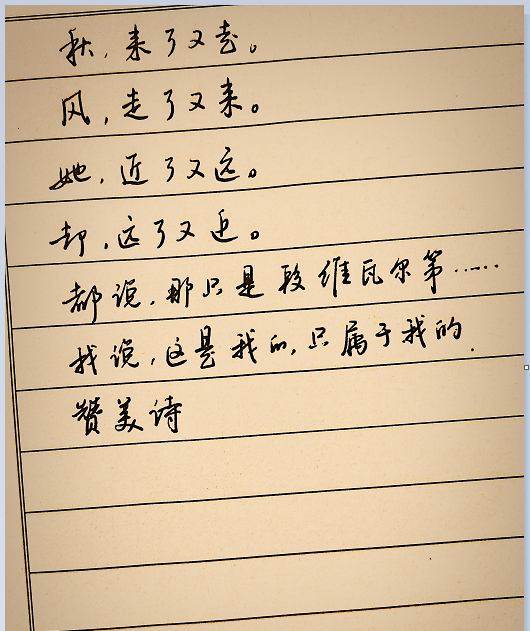 秋，来了又去。
风，走了又来。
她，近了又远。
却，远了又近。
都说，那只是 维瓦尔第……
我说，这是我的，只属于我的
赞美诗